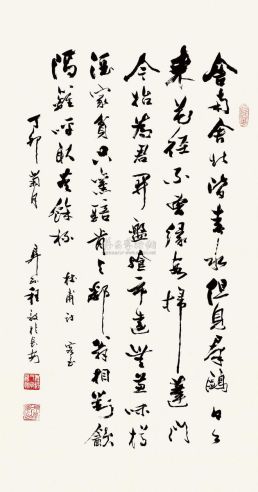 舍南舍北皆春水但見群鷗日日
來花徑不曾緣客掃蓬門
今始為君開盤飧市遠無兼味樽
酒家貧只舊醅肯與鄰翁相對飲
隔籬呼取盡餘杯
杜甫詩 客至
丁卯菊月
於長安